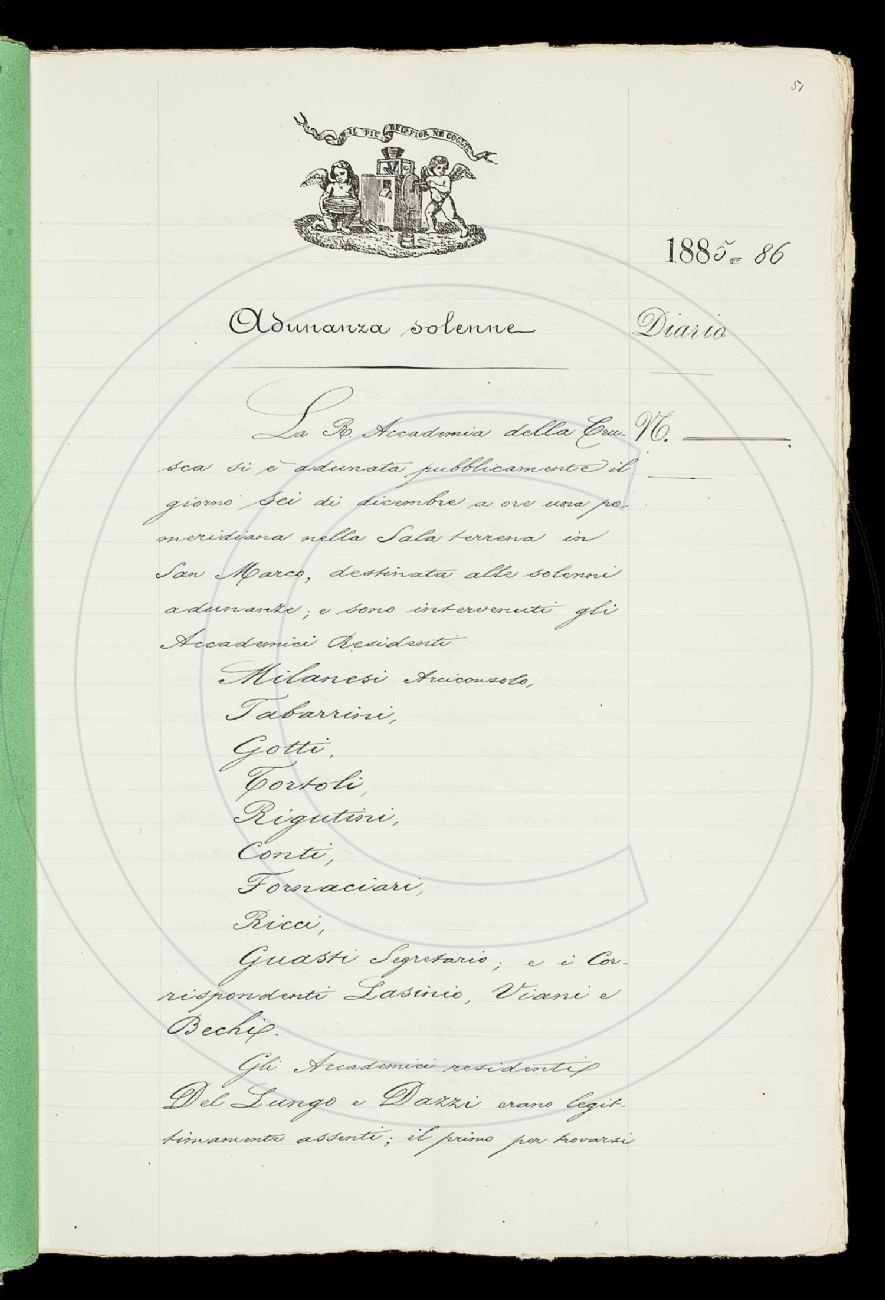 51
IL PIÙ BEL FIOR NE COGLIE
1885=86
Adunanza solenne
Diario
La R. Accademia della Cru-
N.
sca si è adunata pubblicamente il
giorno sei di dicembre a ore una po-
meridiana nella Sala terrena in
San Marco, destinata alle solenni
adunanze; e sono intervenuti gli
Accademici Residenti
Milanesi Arciconsolo,
Tabarrini,
Gotti,
Tortoli,
Rigutini,
Conti,
Fornaciari,
Ricci,
Guasti Segretario; e i Cor-
rispondenti Lasinio, Viani e
Bechi.
Gli Accademici residenti
Del Lungo e Dazzi erano legit-
timamente assenti; il primo per trovarsi